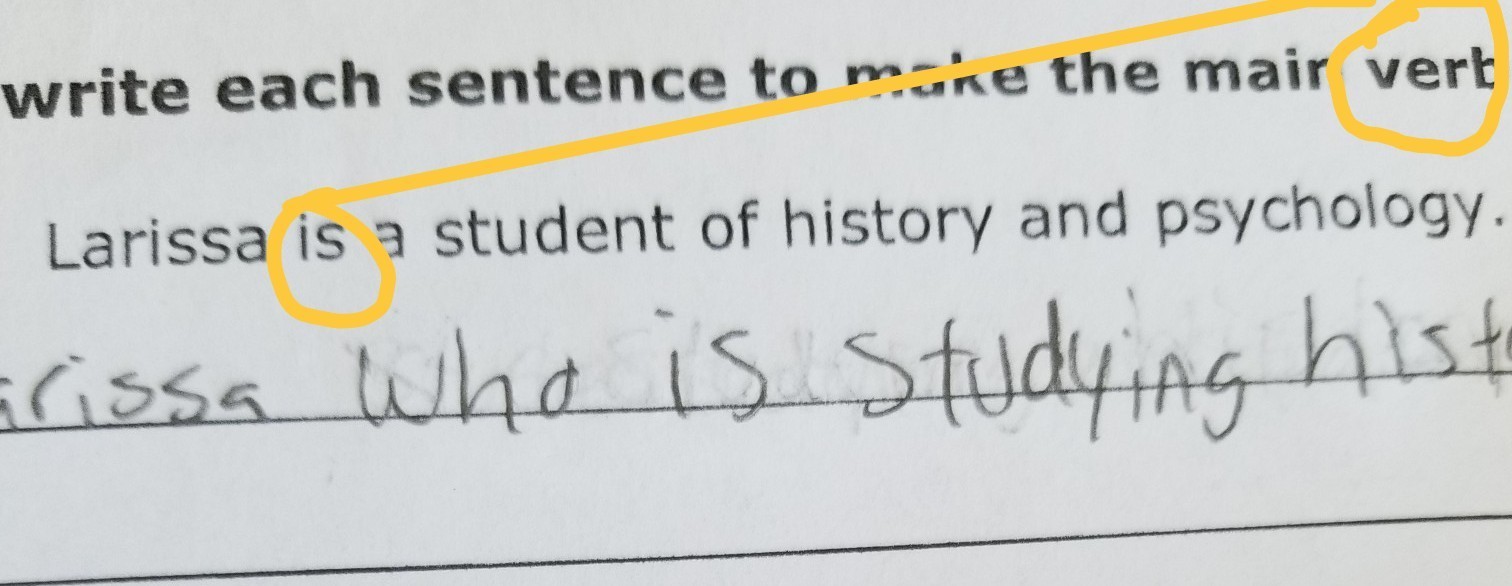 write each sentence to make the main verb
Larissa is a student of history and psychology.
arissa Who is studying hist